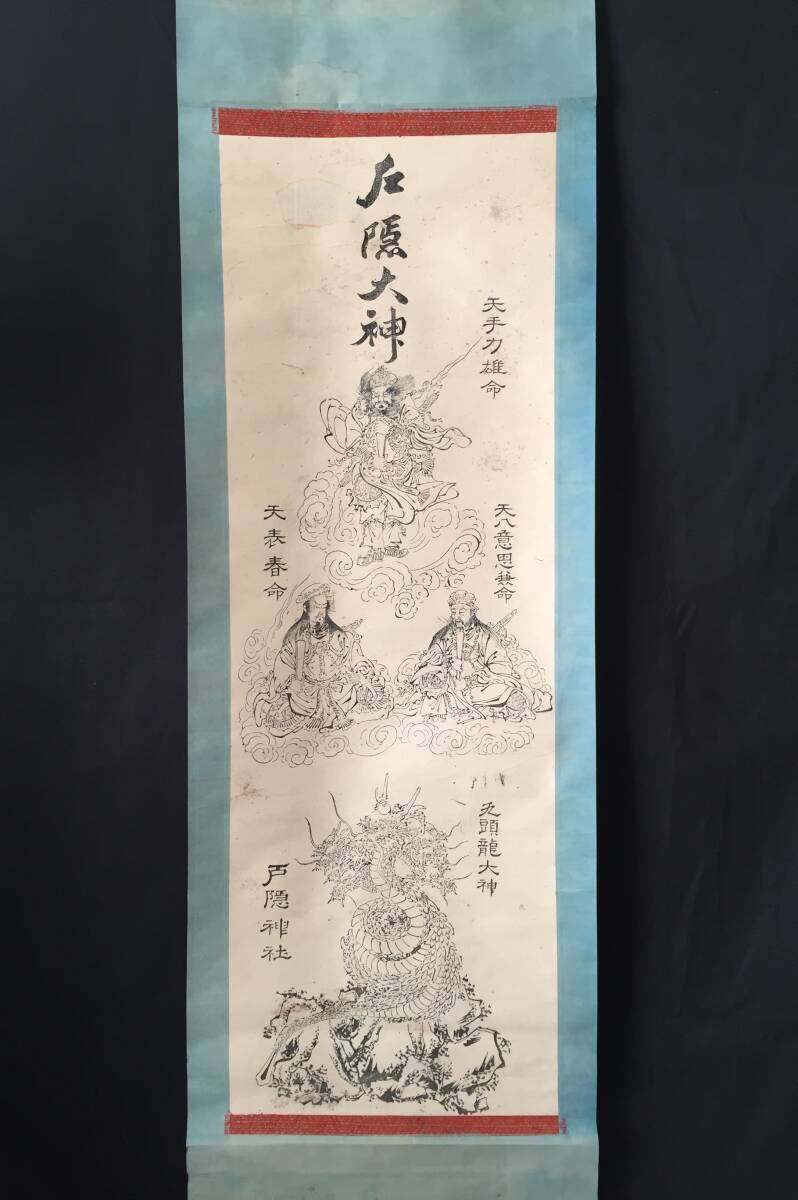 戸隠大神
天手力雄命
天八意思兼命
天表春命
九頭龍大神
戸隠神社